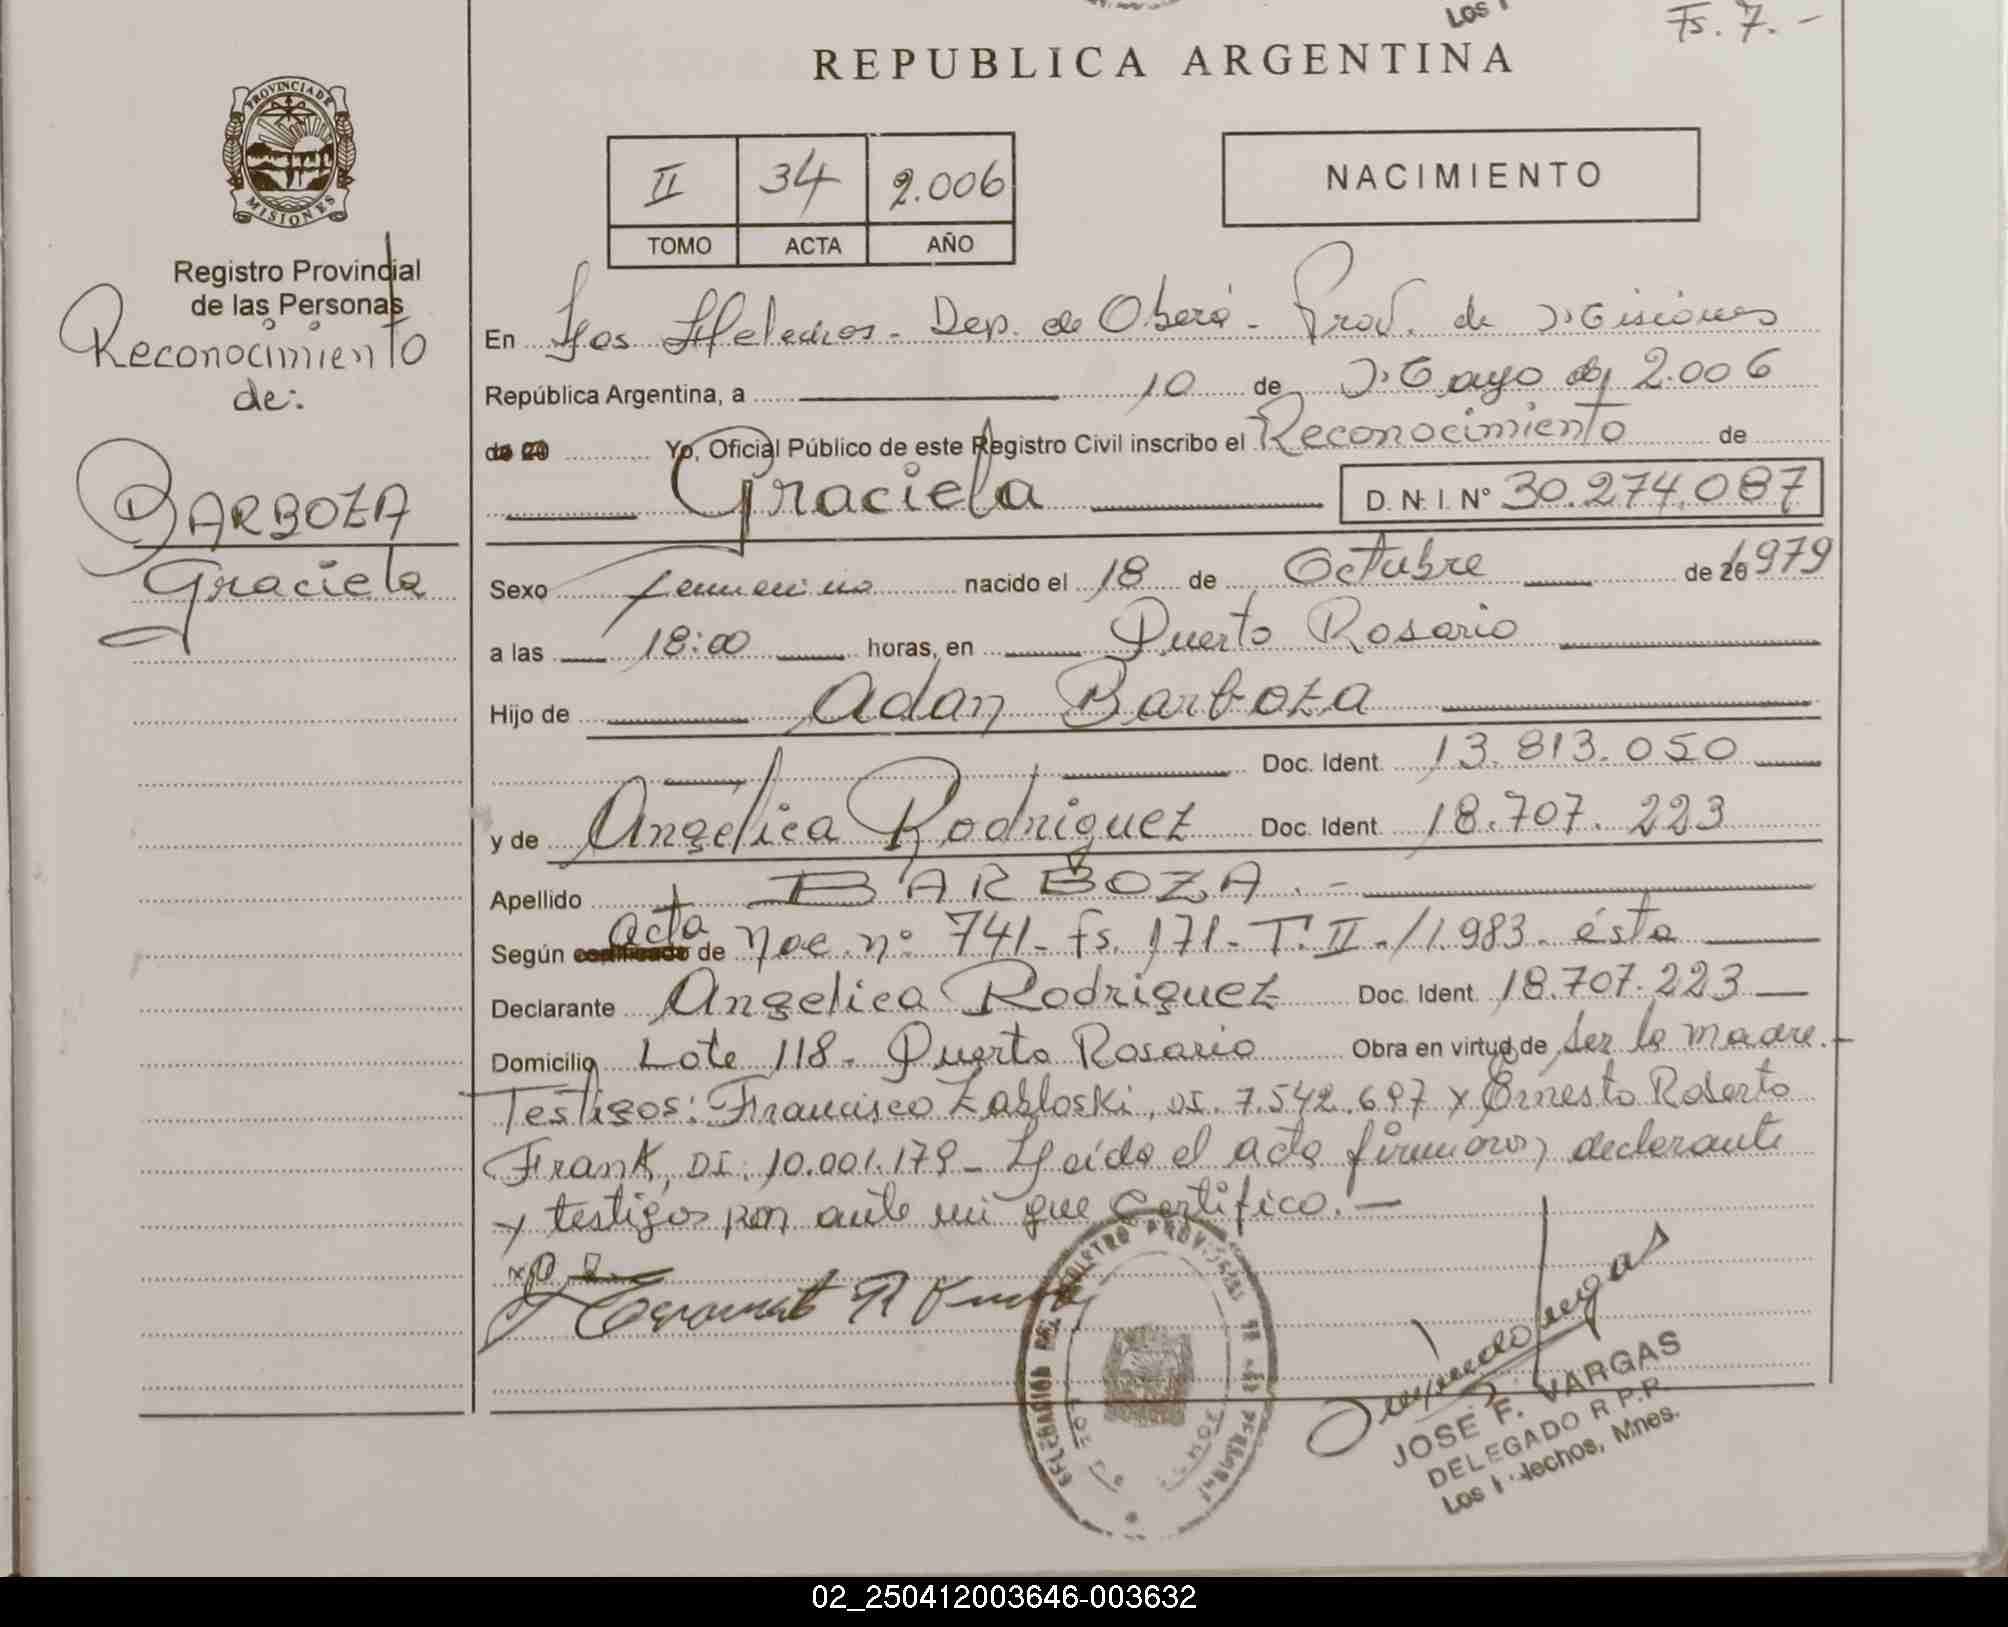 Los
Fs. 7.-
REPUBLICA ARGENTINA
PROVINCIA DE
MISIONES
Registro Provincial
de las Personas
Reconocimiento
de:
BARBOZA
Graciela
II 34 2.006
TOMO ACTA AÑO
NACIMIENTO
En Los Helechos - Dep. de Oberá - Prov. de Misiones
República Argentina, a 10 de Mayo de 2.006
de 20 Yo, Oficial Público de este Registro Civil inscribo el Reconocimiento de
Graciela D.N.I. N° 30.274.087
Sexo femenino nacido el 18 de Octubre de 1979
a las 18:00 horas, en Puerto Rosario
Hijo de Adan Barboza
Doc. Ident. 13.813.050
y de Angelica Rodriguez Doc. Ident. 18.707.223
Apellido BARBOZA.-
Según certificado acta de Nac. n° 741 - fs. 171 - T. II - /1.983 - ésta
Declarante Angelica Rodriguez Doc. Ident. 18.707.223
Domicilio Lote 118 - Puerto Rosario Obra en virtud de ser la madre.-
Testigos: Francisco Zabloski, DI. 7.542.697 y Ernesto Roberto
Frank, DI. 10.001.179 - Leida el acta firmaron, declarante
y testigos por ante mi que Certifico.-
JOSE F. VARGAS
DELEGADO R.P.P.
Los Helechos, Mnes.
02_250412003646-003632